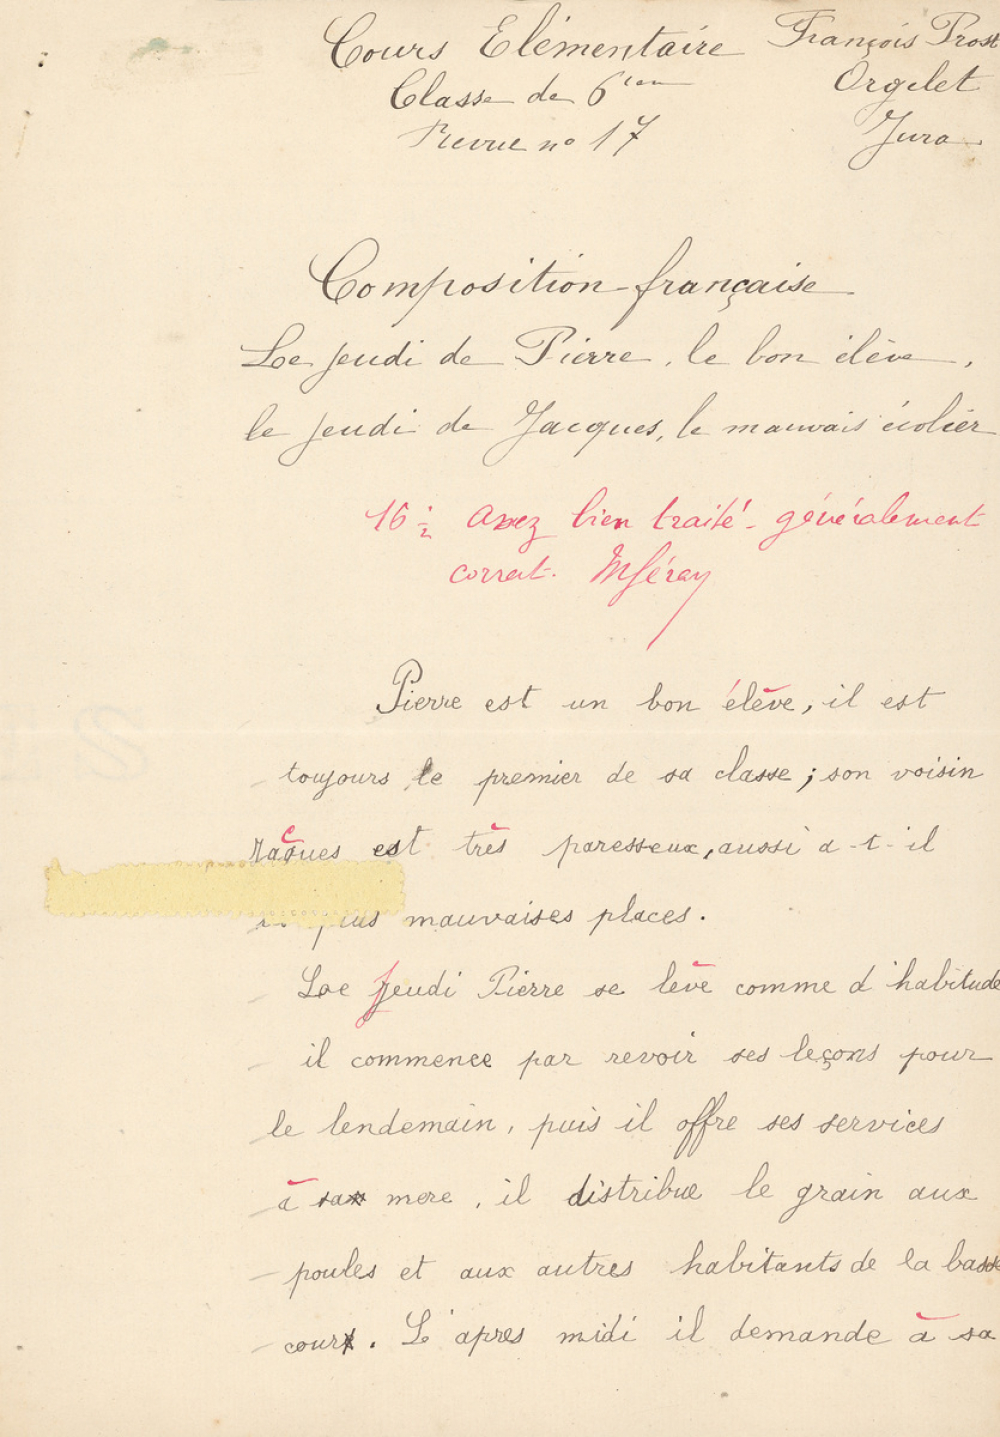 Cours Elémentaire François Prost
Classe de 6ième Orgelet
Revue no 17 Jura
Composition française
Le jeudi de Pierre, le bon élève,
le jeudi de Jacques, le mauvais écolier
16 1/2 Assez bien traité - généralement
correct.
Pierre est un bon élève, il est
toujours le premier de sa classe ; son voisin
Jacques est très paresseux, aussi a-t-il
mauvaises places.
Le jeudi Pierre se lève comme d'habitude
il commence par revoir ses leçons pour
le lendemain, puis il offre ses services
à sa mere, il distribue le grain aux
poules et aux autres habitants de la basse
cour. L'apres midi il demande à sa